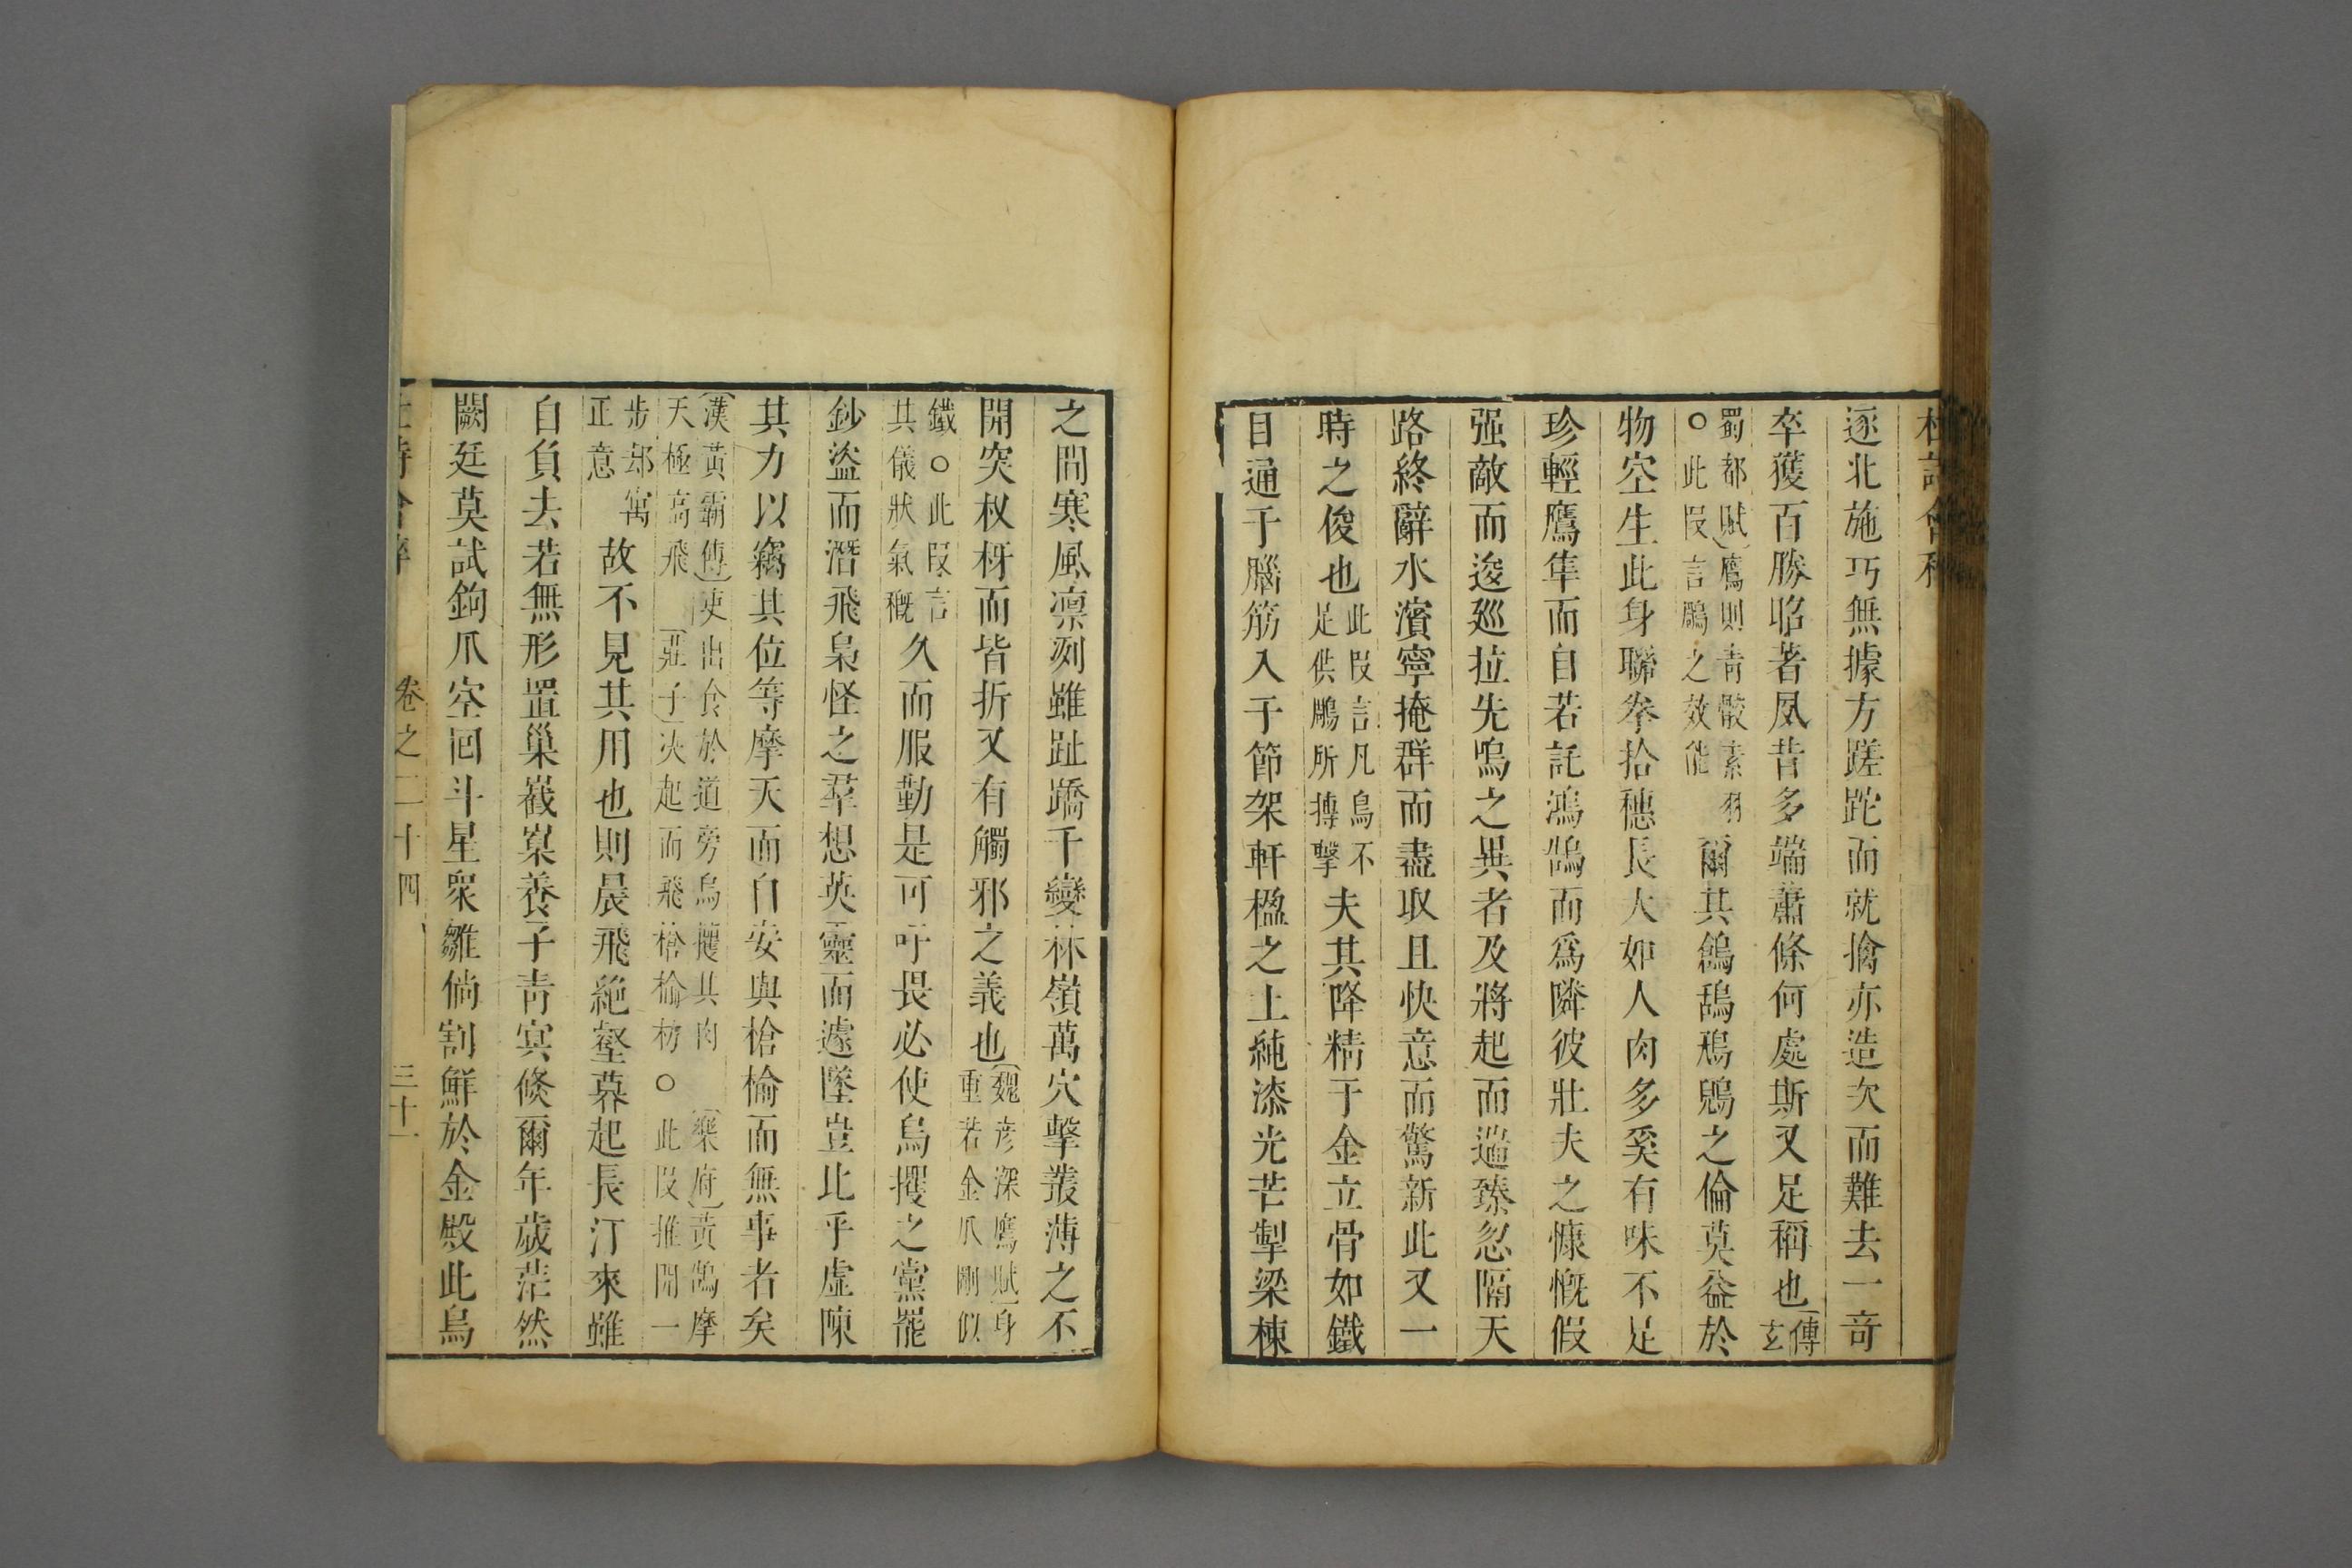 逐北施巧無據方蹉跎而就擒亦造次而難去一奇
卒獲百勝昭著夙昔多端蕭條何處斯又足稱也傅玄
蜀都賦鷹則青骹素羽
○此叚言鵰之效能
爾其鶬鴰鳵鶂之倫莫益於
物空生此身聯拳拾穗長大如人肉多奚有味不足
珍輕鷹隼而自若託鴻鵠而爲隣彼壯夫之慷慨假
强敵而逡巡拉先鳴之異者及將起而遄臻忽隔天
路終辭水濱寧掩群而盡取且快意而驚新此又一
時之俊也
此叚言凡鳥不
足供鵰所摶擊
夫其降精于金立骨如鐵
目通于腦筋入于節架軒楹之上純漆光芒掣梁棟
之間寒風凛冽雖趾蹻千變林嶺萬穴擊叢薄之不
開突杈枒而皆折又有觸邪之義也
魏彦深鷹賦身
重若金爪剛似
鐵○此叚言
其儀狀氣槪
久而服勤是可吁畏必使烏攫之黨罷
鈔盜而潛飛梟怪之羣想英靈而遽墜豈比乎虛陳
其力以竊其位等摩天而自安與槍榆而無事者矣
漢黃霸傳吏出食於道旁烏攫其肉 樂府黃鵠摩
天極高飛 莊子决起而飛槍榆枋○此叚推開一
步却寓
正意
故不見其用也則晨飛絶壑暮起長汀來雖
自負去若無形置巢嶻嶪養子青冥倐爾年歲茫然
闕廷莫試鉤爪空回斗星衆雛倘割鮮於金殿此鳥
卷之二十四
三十一